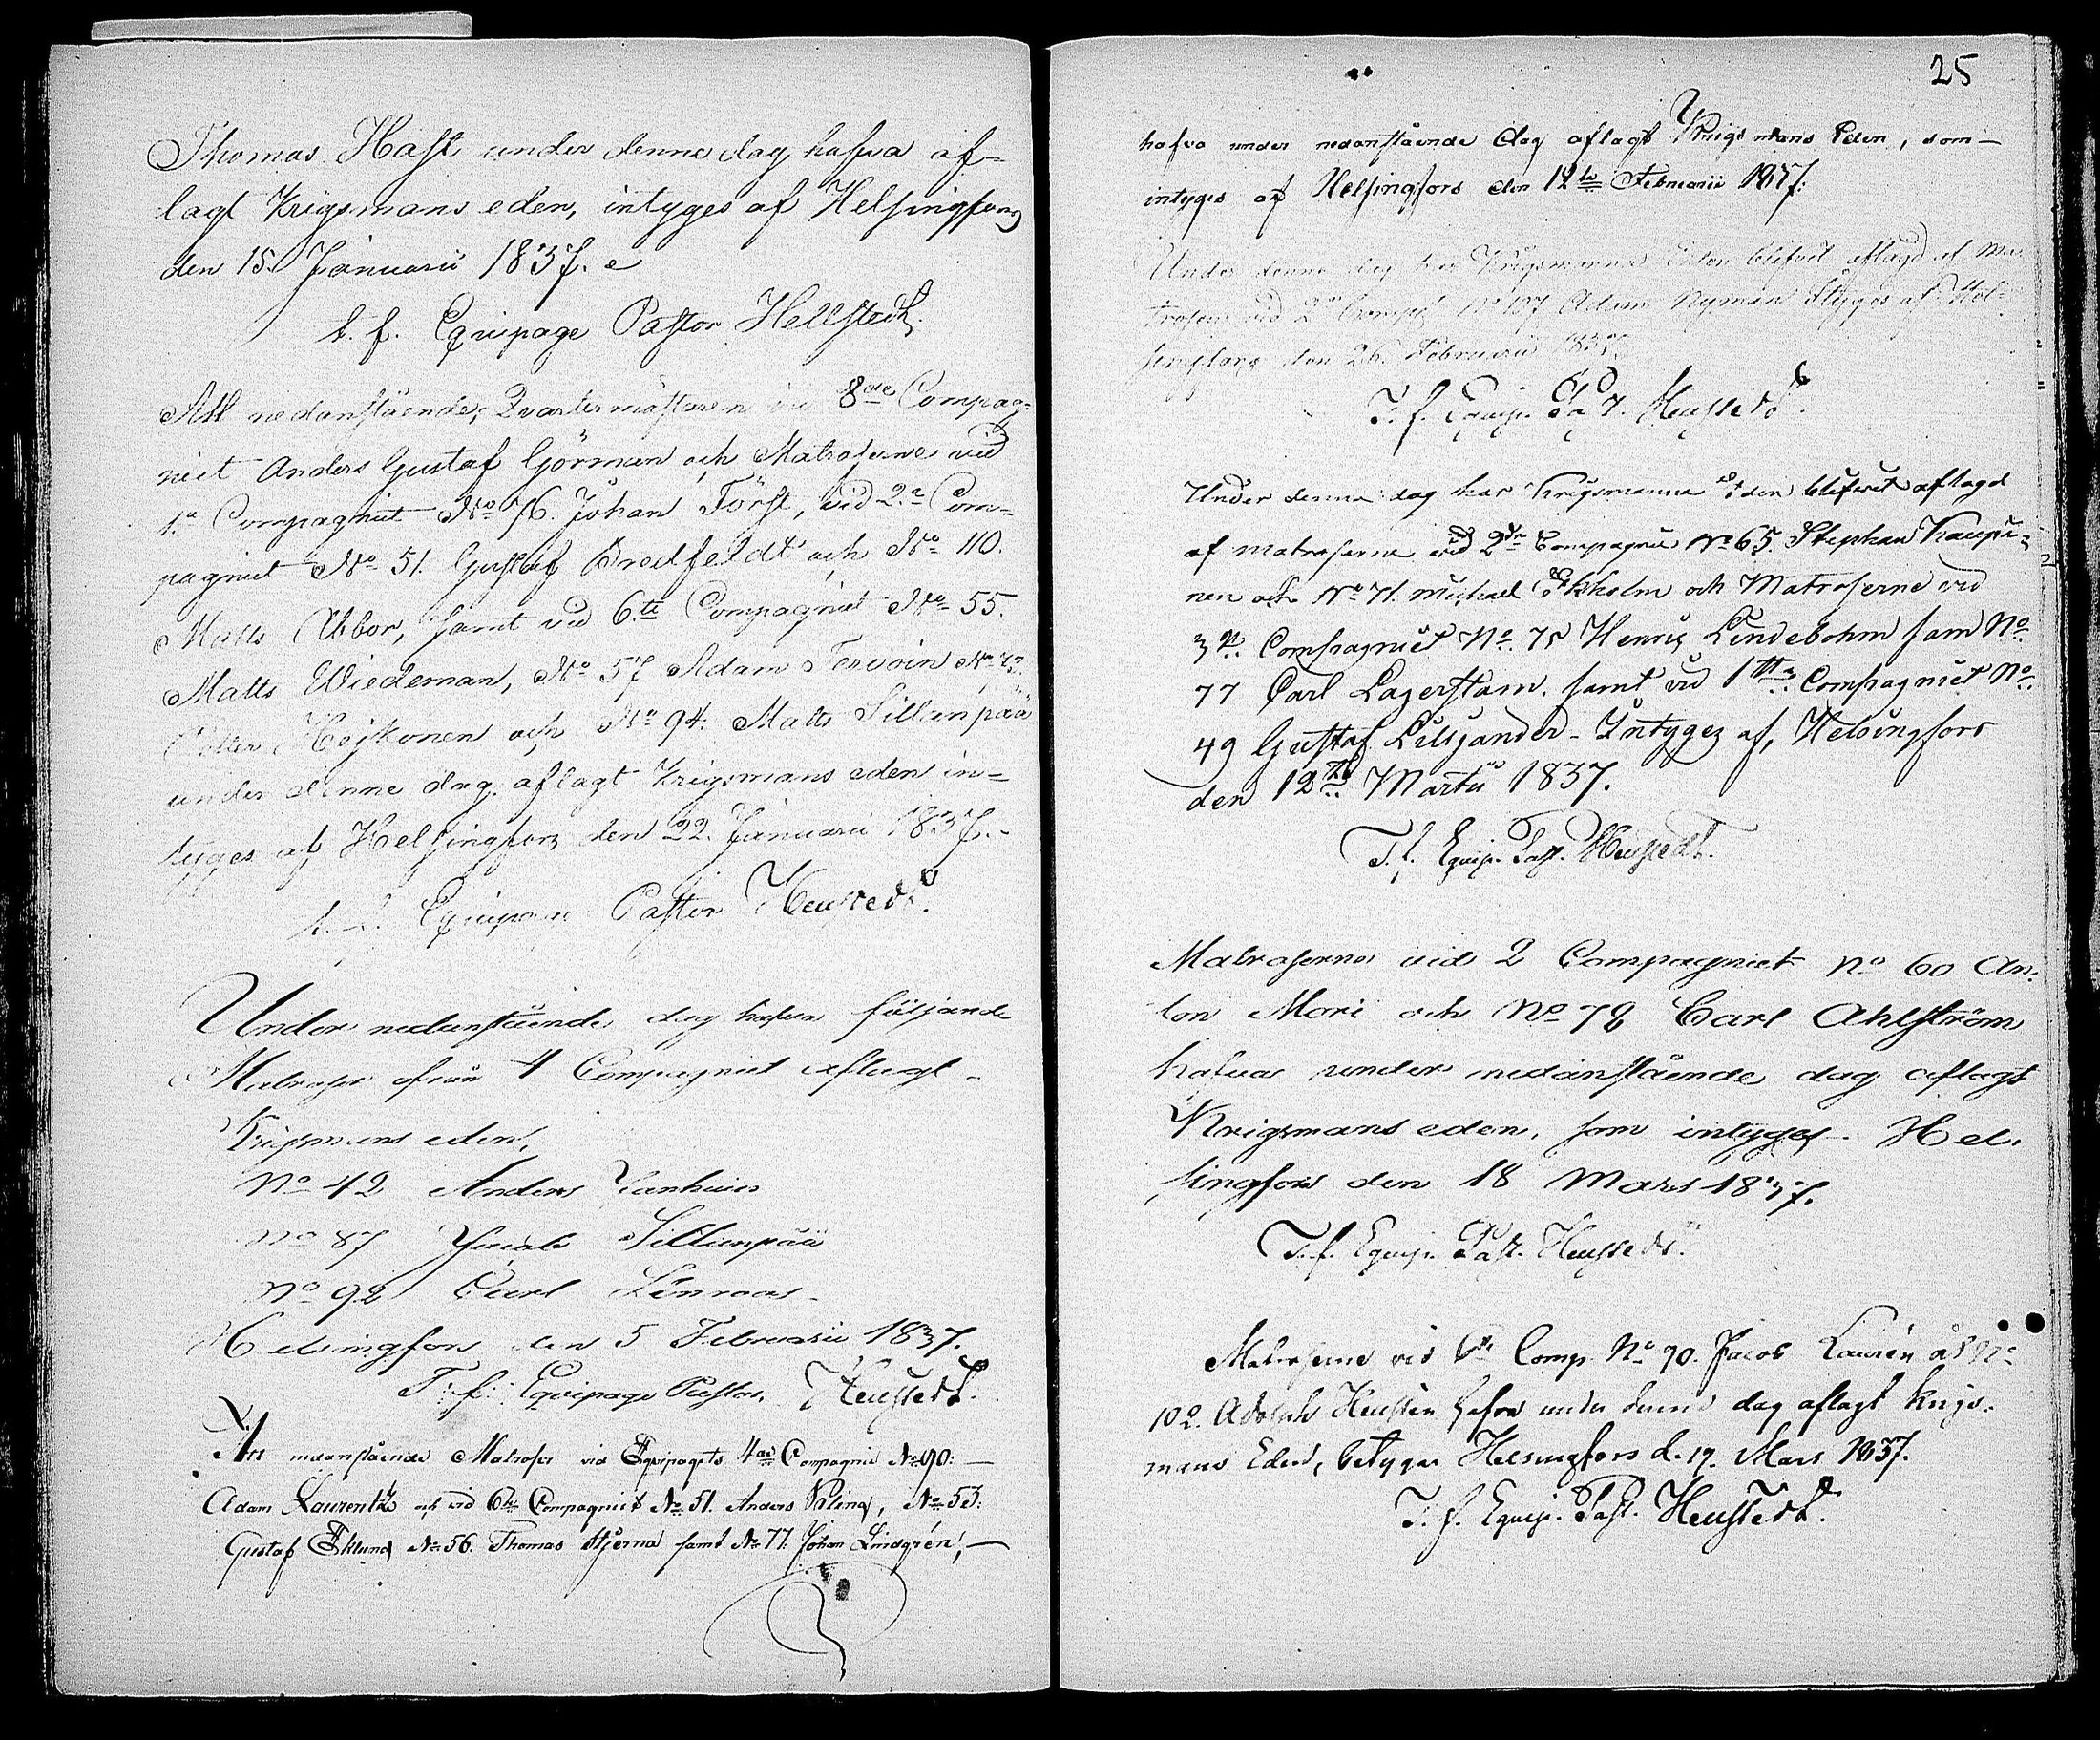 Thomas Hast under denne dag hafva af-
lagt Krigsmans eden, intyges af Helsingfors
den 15. Januarii 1837.
t. f. Equipage Pastor
Att nedanstående, Qvartermästaren vid 8de Compag-
niet Anders Gustaf Görman och Matroserne vid
1a Compagniet No 76. Johan Törst, vid 2a Com-
pagniet No 51. Gustaf Bredfeldt och No 110.
Matts Abbor, samt vid 6te Compagniet No 55.
Matts Wiedeman, No 57 Adam Tervoin No
Petter Hojkonen och No 94. Matts Sillanpää
under denne dag aflagt Krigsmans eden in-
tyges af Helsingfors den 22. Januarii 1837.-
t. f. Equipage Pastor
Under nedanstående dag hafva följande
Matroser ifrån 4 Compagniet aflagt
Krigsmans eden,
No 42 Anders
No 87 Sillanpää
No 92 Carl
Helsingfors den 5 Februarii 1837.
T. f. Equipage Pastor.
Att nedanstående Matroser vid Equipagets 4de Compagnie No 90: —
Adam Laurentz och vid 6te Compagniet No 51. Anders Palin, No 53:
Gustaf Eklund No 56. Thomas Stjerna samt No 77. Johan Lindgrén, —
25
hafva under nedanstående dag aflagt Krigsmans Eden, som —
intyges af Helsingfors den 12te Februarii 1837.
Under denne dag har Krigsmanna Eden blifvit aflagd af Ma-
trosen vid 2a Comp. No 107 Adam Nyman Intyges af Hel-
singfors den 26. Februarii 1837.
T. f. Equip. Past.
Under denna dag har Krigsmanna Eden blifvit aflagd
af matroserne vid 2dra Compagnie No 65. Stephan Kaupi-
nen och No 71. Michael Ekholm och Matroserne vid
3e. Compagniet No. 75 Henric Lindebohm sam No.
77 Carl Lagerstam. samt vid 1sta. Compagniet No.
49 Gustaf Liljander - Intyges af, Helsingfors
den 12te Martii 1837.
T. f. Equip. Past.
Matroserne vid 2 Compagniet No 60 An-
ton Mori och No 72 Carl Ahlström
hafva under nedanstående dag aflagt
Krigsmans eden, som intyges. Hel-
singfors den 18 Mars 1837.
T. f. Equip. Past.
Matroserne vid 6te Comp. No 90. Jacob Laurén och No
102. Adolph hafva under denna dag aflagt krigs-
mans Eden, betygar Helsingfors d. 19. Mars 1837.
T. f. Equip. Past.